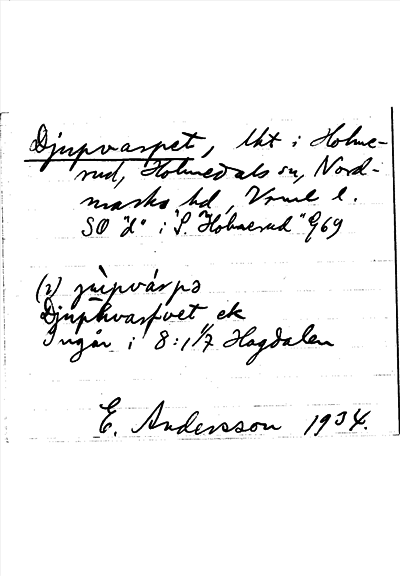 Djupvarpet, lht i Holme-
rud, Holmedals sn, Nord-
marks hd, Vrml l.
SO "d" i "S. Holmerud" Q69
(2) jùpvárpə
Djuphvarfvet ek
Ingår i 8:1 1/7 Hagdalen
E. Andersson 1934.